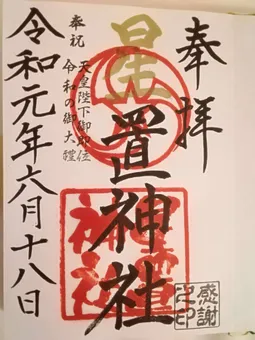 奉拝
星置神社
奉祝 天皇陛下御即位
令和の御大禮
令和元年六月十八日
星置神社
感謝之印